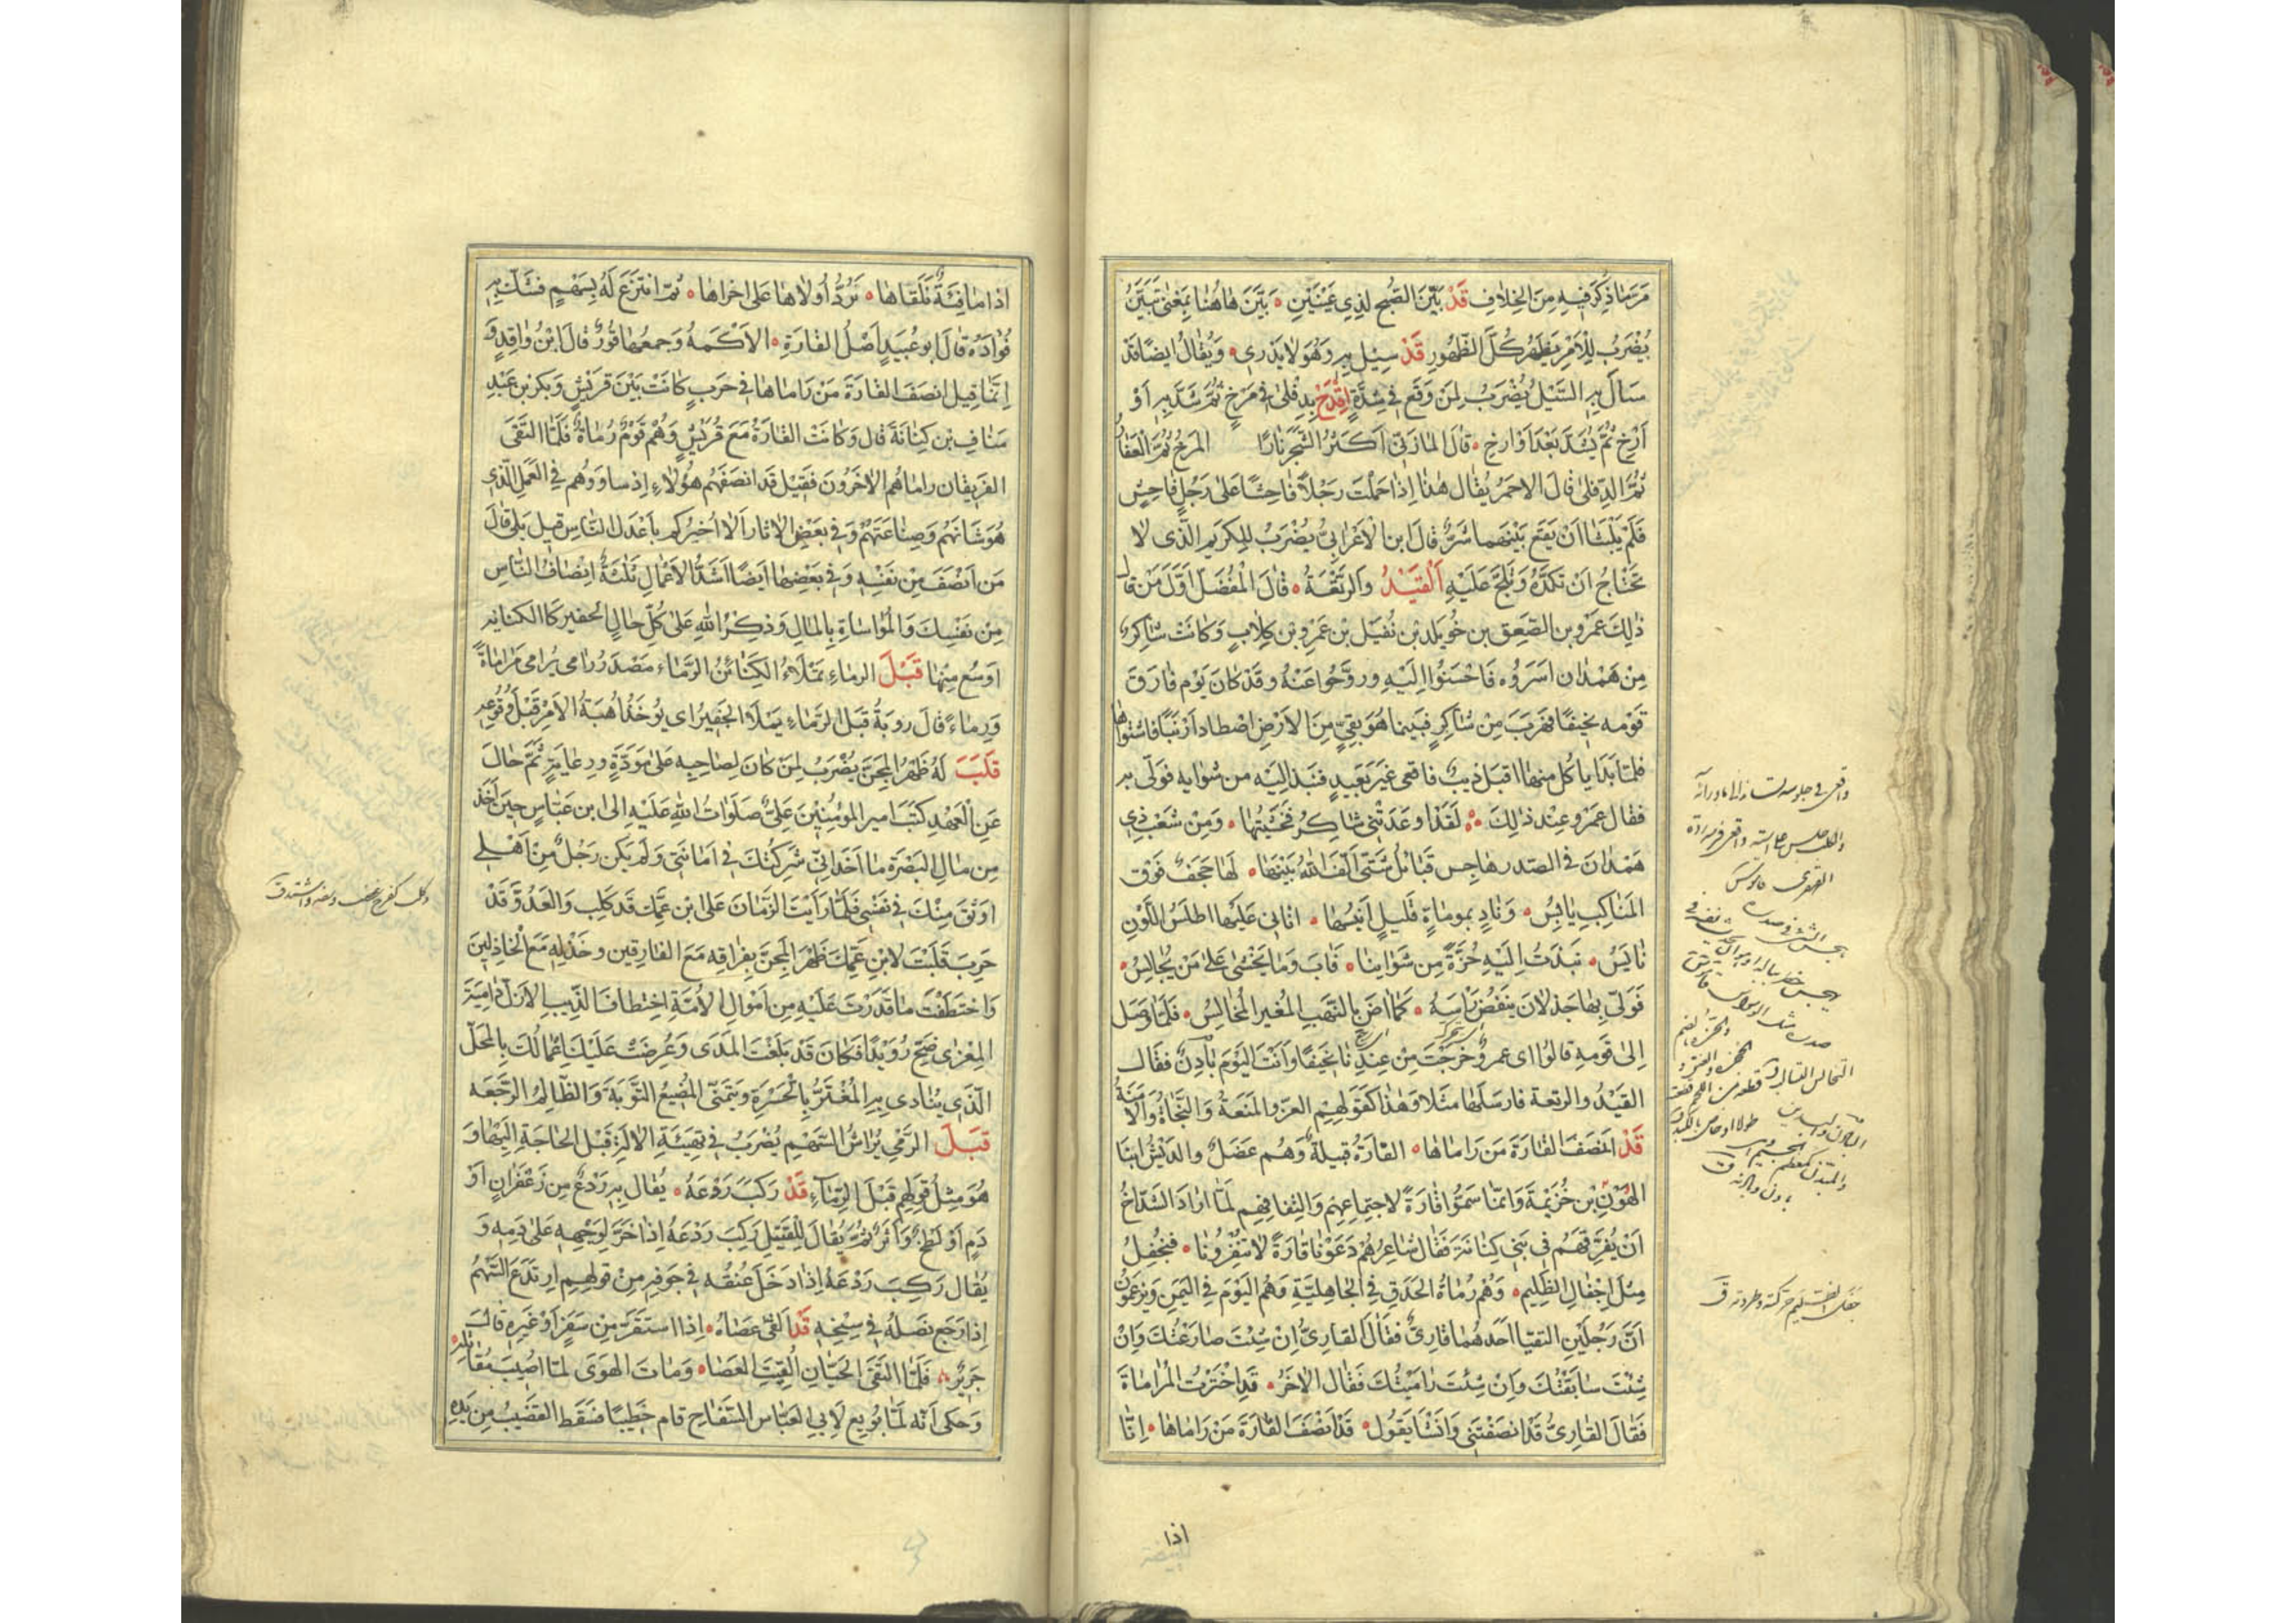 مَرَّ مَا ذُكِرَ فِيهِ مِنَ الْخِلَافِ قَدْ بَيَّنَ الصُّبْحُ لِذِي عَيْنَيْنِ بَيَّنَ هَاهُنَا بِمَعْنَى تَبَيَّنَ
يُضْرَبُ لِلْأَمْرِ يَظْهَرُ كُلَّ الظُّهُورِ قَدْ سِيلَ بِهِ وَهُوَ لَا يَدْرِي وَيُقَالُ اَيْضًا قَدْ
سَالَ بِهِ السَّيْلُ يُضْرَبُ لِمَنْ وَقَعَ فِي شِدَّةٍ اِقْدَحْ بِدِفْلَى فِي مَرْخٍ ثُمَّ شُدَّ بِهِ اَوْ
اَرْخِ ثُمَّ يُشَدّ بَعْدُ اَوْ ارْخِ قَالَ المَازَنِيّ اَكْثَرُ الشَّجَرِ نَارًا المَرْخُ ثُمَّ الْعَفَارُ
ثُمَّ الدِّفْلَى قَالَ الاحمَرُ يُقَال هٰذَا اِذَا حَمَلْتَ رَجُلًا فَاحِشًا عَلَى رَجُلٍ فَاحِشٍ
فَلَمْ يَلْبَثَا اَنْ يَقَعَ بَيْنَهُمَا شَرٌّ قَالَ ابن الْاَعْرَابِيّ يُضْرَبُ لِلْكَرِيمِ الَّذِى لَا
تَحْتَاجُ اَنْ تَكُدَّهُ وَتُلِحَّ عَلَيْهِ اَلْقَيْدُ وَالرَّتْعَةُ قَالَ الْمُفَضَّلُ اَوَّلُ مَنْ قَالَ
ذٰلِكَ عَمْرُو بن الصَّعِق بن خُوَيلد بْن نُفَيل بْن عَمْرِو بْن كِلَابٍ وَكَانَتْ شَاكِرٌ
مِنْ هَمْدَان اسَرُوه فَاحْسَنُوا اِلَيْهِ وروَّحُوا عَنْهُ وقَدْ كَانَ يَوْم فَارَقَ
قَوْمه نَحِيفًا فهَرَبَ مِنْ شَاكِرٍ فَبَينما هُوَ بِقِيٍّ مِنَ الاَرْضِ اصْطَادَ اَرْنَبًا فَاشْتَوَاهَا
فلمّا بَدَا يَاكُل منهَا اقبَلَ ذيبٌ فَاقعى غَيْرَ بَعِيدٍ فنَبَذ اِلَيْه من شِوَايه فوَلّى به
فقَال عَمْرو عِنْد ذٰلِكَ لَقَدْ اَوعَدَتْنِي شَاكِرُ فَخَشِيتُهَا وَمِنْ شَعْبِ ذِي
هَمْدَانَ فى الصّدر هَاجِس قَبَائلُ شَتَّى اَلَّفَ اللّٰهُ بَيْنَهَا لَهَا حَجَفٌ فَوْقَ
المَنَاكِبِ يَابِسُ وَنَادٍ بمومَاةٍ قَلِيلٍ اَنِيسُهَا اتَانِى عَلَيهَا اطلَسُ اللَّوْنِ
بَايسُ نَبَذتُ اِلَيْهِ حُزَّةً مِن شِوَائِنَا فَآبَ وَمَا يَخْشَى عَلَى مَنْ يُجَالِسُ
فَوَلَّى بِهَا جَذْلَانَ يَنفُضُ رَاسَهُ كَمَا آضَ بِالنَّهْبِ المُغِيرُ المُخَالِسُ فَلَمَّا وَصَل
اِلى قَومِه قَالُوا اى عمرو خَرَجْتَ مِنْ عِنْدِنَا نَحِيفًا وَاَنْتَ اليَوْمَ بَادِنٌ فقَال
القَيْدُ والرتعة فارسَلَهَا مَثَلًا وَهٰذَا كَقَوْلِهِم العِزّ والمَنَعَةُ وَالنَّجَاةُ وَالْاَمَنَةُ
قَدْ اَنصَفَ القَارَةَ مَنْ رَامَاهَا القَارَةُ قَبِيلَةٌ وَهُم عَضَلُ والدِّيشُ ابنَا
الهَوْنِ بن خُزَيْمَةَ وَانّمَا سَمَّوا قَارَةً لِاجتِمَاعِهِم وَالتِفَافِهِم لَمَّا اَرَادَ الشَّدَّاخُ
اَنْ يُفَرِّقَهُم فِى بَنِي كِنَانَة فَقَال شَاعِرُهُمْ دَعَوْنَا قَارَةً لَا تُنْفِرُونَا فَنُجْفِلَ
مِثْلَ اِجْفَالِ الظَّلِيم وَهُم رُمَاةُ الحَدَقِ فِي الجَاهِليَّةِ وَهُمُ اليَوْمَ فِي اليَمَنِ وَيَزْعَمُونَ
اَنَّ رَجُلَيْنِ التقيَا اَحَدُهُمَا قَارِيٌّ فَقَالَ القَارِيُّ اِنْ شِئْتَ صَارَعْتُكَ وَاِنْ
شِئْتَ سَابَقْتُكَ وَاِنْ شِئْتَ رَامَيْتُكَ فَقَالَ الاٰخَرُ قَدِ اخْتَرْتُ المُرَامَاةَ
فَقَالَ القَارِيُّ قَدْ انصَفْتَنِي وَاَنْشَا يَقُول قَدْ اَنْصَفَ القَارَةَ مَنْ رَامَاهَا اِنَّا
اذا
اِذَا مَا فِئَةٌ نَلْقَاهَا نَرُدُّ اُولَاهَا عَلَى اُخْرَاهَا ثُمّ انتَزَعَ لَهُ بِسَهْمٍ فَشَكَّ بِهِ
فُؤَادَهُ قَالَ ابو عُبَيدٍ اَصْلُ القَارَةِ الاَكَمَةُ وَجَمعُهَا قُورٌ قَالَ ابْنُ وَاقِدٍ وَ
اِنَّمَا قِيل انصَفَ القَارَةَ مَنْ رَامَاهَا فِي حَربٍ كَانَتْ بَيْنَ قُرَيْشٍ وَبَكر بن عَبْدِ
مَنَافِ بْن كِنَانَةَ قَال وَكَانَتِ القَارَةُ مَعَ قُرَيْشٍ وَهُمْ قَوْمٌ رُمَاةٌ فَلَمَّا التَقَى
الفَريقَان رَامَاهُم الاٰخَرُونَ فَقِيْل قَد انصَفَهُم هٰؤُلَاءِ اِذ سَاوَوْهُم فِي العَمَلِ الَّذِي
هُوَ شَانهُم وَصِنَاعَتُهُمْ وَفِي بَعْضِ الْاٰثَارِ اَلَا اُخبِرُكم بِاَعْدَلِ النَّاسِ قِيل بَلَى قَالَ
مَن اَنْصَفَ مِن نَفْسِهِ وَفِي بَعْضِهَا اَيضًا اَشَدُّ الاَعْمَالِ ثَلَثَةٌ اِنْصَافُ النَّاسِ
مِنْ نَفْسِكَ وَالْمُوَاسَاةِ بِالمَالِ وَذِكْرُ اللّٰهِ عَلَى كُلِّ حَالٍ
اَوسَعُ مِنْهَا قَبْلَ الرِماءِ تُمْلَاُ الكَنَائِنُ الرِّمَاء مَصْدَرُ رَامى يُرَامى مُرَامَاةً
وَرِمَاءً قَالَ روبَةُ قَبْل الرِّمَاءِ يُملَا الجَفِيرُ اى يُوخَذُ اُهْبَةُ الاَمْرِ قَبْلَ وُقُوعِهِ
قَلَبَ لَهُ ظَهْرَ المِجَنِّ يُضْرَبُ لِمَن كَانَ لِصَاحِبِه عَلى مَوَدَّةٍ ورِعَايَةٍ ثُمَّ حَالَ
عَنِ الْعَهْدِ كَتَبَ امير المؤمِنِيْنَ عَلِيٌّ صَلَوَاتُ اللّٰهِ عَلَيْهِ اِلى ابن عَبَّاسٍ حِينَ اَخَذ
مِن مَالِ البَصْرَةِ مَا اَخَذَ اِنِّي شَرِكْتُكَ فِي اَمَانَتِي وَلَم يَكُن رَجُلٌ مِنْ اَهْلِي
اَوثَقَ مِنْكَ فِي نَفْسِي فَلَمَّا رَاَيْتَ الزَّمَانَ عَلَى ابن عَمِّك قَد كَلِبَ وَالعَدُوَّ قَدْ
حَرِبَ قَلَبْتَ لِابْن عَمِّكَ ظَهْرَ المِجَنّ بِفِرَاقِه مَعَ المفَارِقين وخَذْلِهِ مَعَ الخَاذِلينَ
وَاختَطَفْتَ مَا قَدَرْتَ عَلَيْهِ مِن اَمْوَالِ الاُمَّةِ اِختِطَافَ الذِّيبِ الاَزَلِّ دَامِيَةَ
المِعْزى ضَحِّ رُوَيْدًا فَكَانَ قَد بَلَغْتَ المَدَى وَعُرِضَتْ عَلَيْكَ اَعْمَالُكَ بِالمَحَلّ
الَّذِي يُنَادِى بِهِ الْمُغْتَرُّ بِالْحَسْرَةِ وَيَتَمَنَّى المُضِيعُ التَّوبَةَ وَالظَّالِمُ الرَّجْعَه
قَبْلَ الرَّمْيِ يُرَاشُ السَّهْمُ يُضْرَبُ فِي تَهيِئَةِ الاٰلَةِ قَبْلَ الحَاجَةِ اِلَيْهَا وَ
هُوَ مِثْلُ قَولِهِم قَبْلَ الرِّمَآءِ قَدْ رَكِبَ رَدْعَهُ يُقَال بِه رَدْعٌ مِن زَعْفَرانٍ اَوْ
دَمٍ اَوْ لَطْخٌ وَاَثَرٌ ثُمَّ يُقَالُ لِلْقَتِيل رَكِبَ رَدْعَهُ اِذَا خَرَّ لِوَجْهِهِ عَلَى دَمِهِ وَ
يُقَال رَكِبَ رَدْعَهُ اِذَا دَخَلَ عُنُقُهُ فِي جَوفِهِ مِنْ قَولِهِم اِرتَدَعَ السَّهْمُ
اِذَا رَجَعَ نَصلُهُ فِي سِنْخِهِ قَدْ اَلقَى عَصَاهُ اِذَا استَقَرَّ مِنْ سَفَرٍ اَوْ غَيرِهِ قَالَ
جَرِيرٌ فَلَمَّا التَقَى الحَيَّانِ اُلقِيَتِ العَصَا وَمَاتَ الهَوَى لَمّا اُصِيبَ مَقَاتِلُه
وَحكى اَنّه لَمَّا بُويِع لِاَبِي العَبَّاس السّفَّاح قام خَطِيبًا فسَقَط القَضِيبُ مِن يَدِهِ